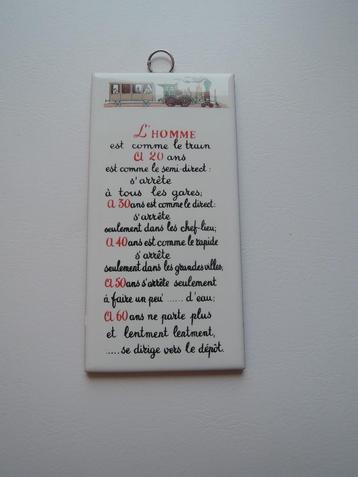 L'HOMME
est comme le train
A 20 ans
est comme le semi-direct:
s'arrête
à tous les gares;
A 30 ans est comme le direct:
s'arrête
seulement dans les chef-lieu;
A 40 ans est comme le rapide
s'arrête
seulement dans les grandes villes;
A 50 ans s'arrête seulement
à faire un peu' ...... d'eau;
A 60 ans ne parte plus
et lentment lentment,
.....se dirige vers le dépôt.